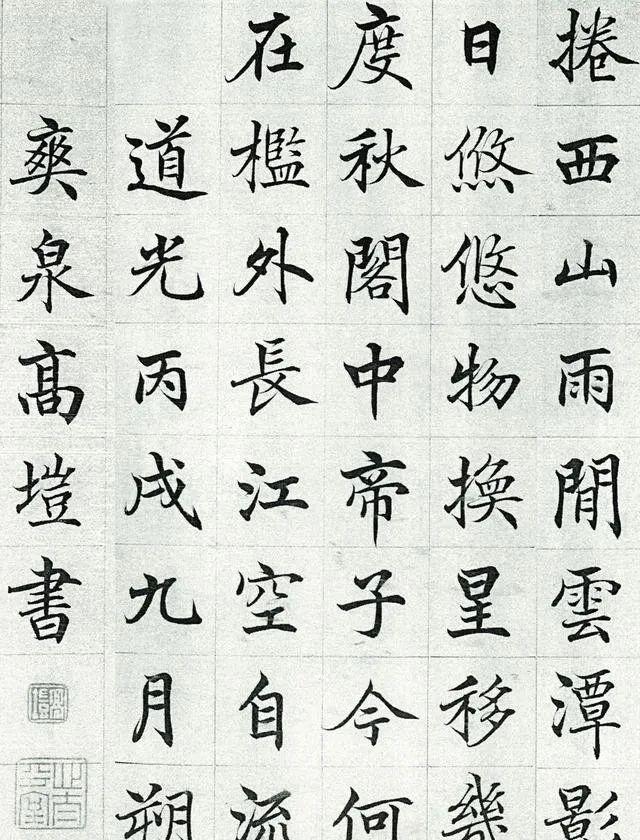 捲西山雨閒雲潭影
日悠悠物換星移幾
度秋閣中帝子今何
在檻外長江空自流
道光丙戌九月朔
爽泉高塏書